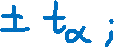 ± tα ;